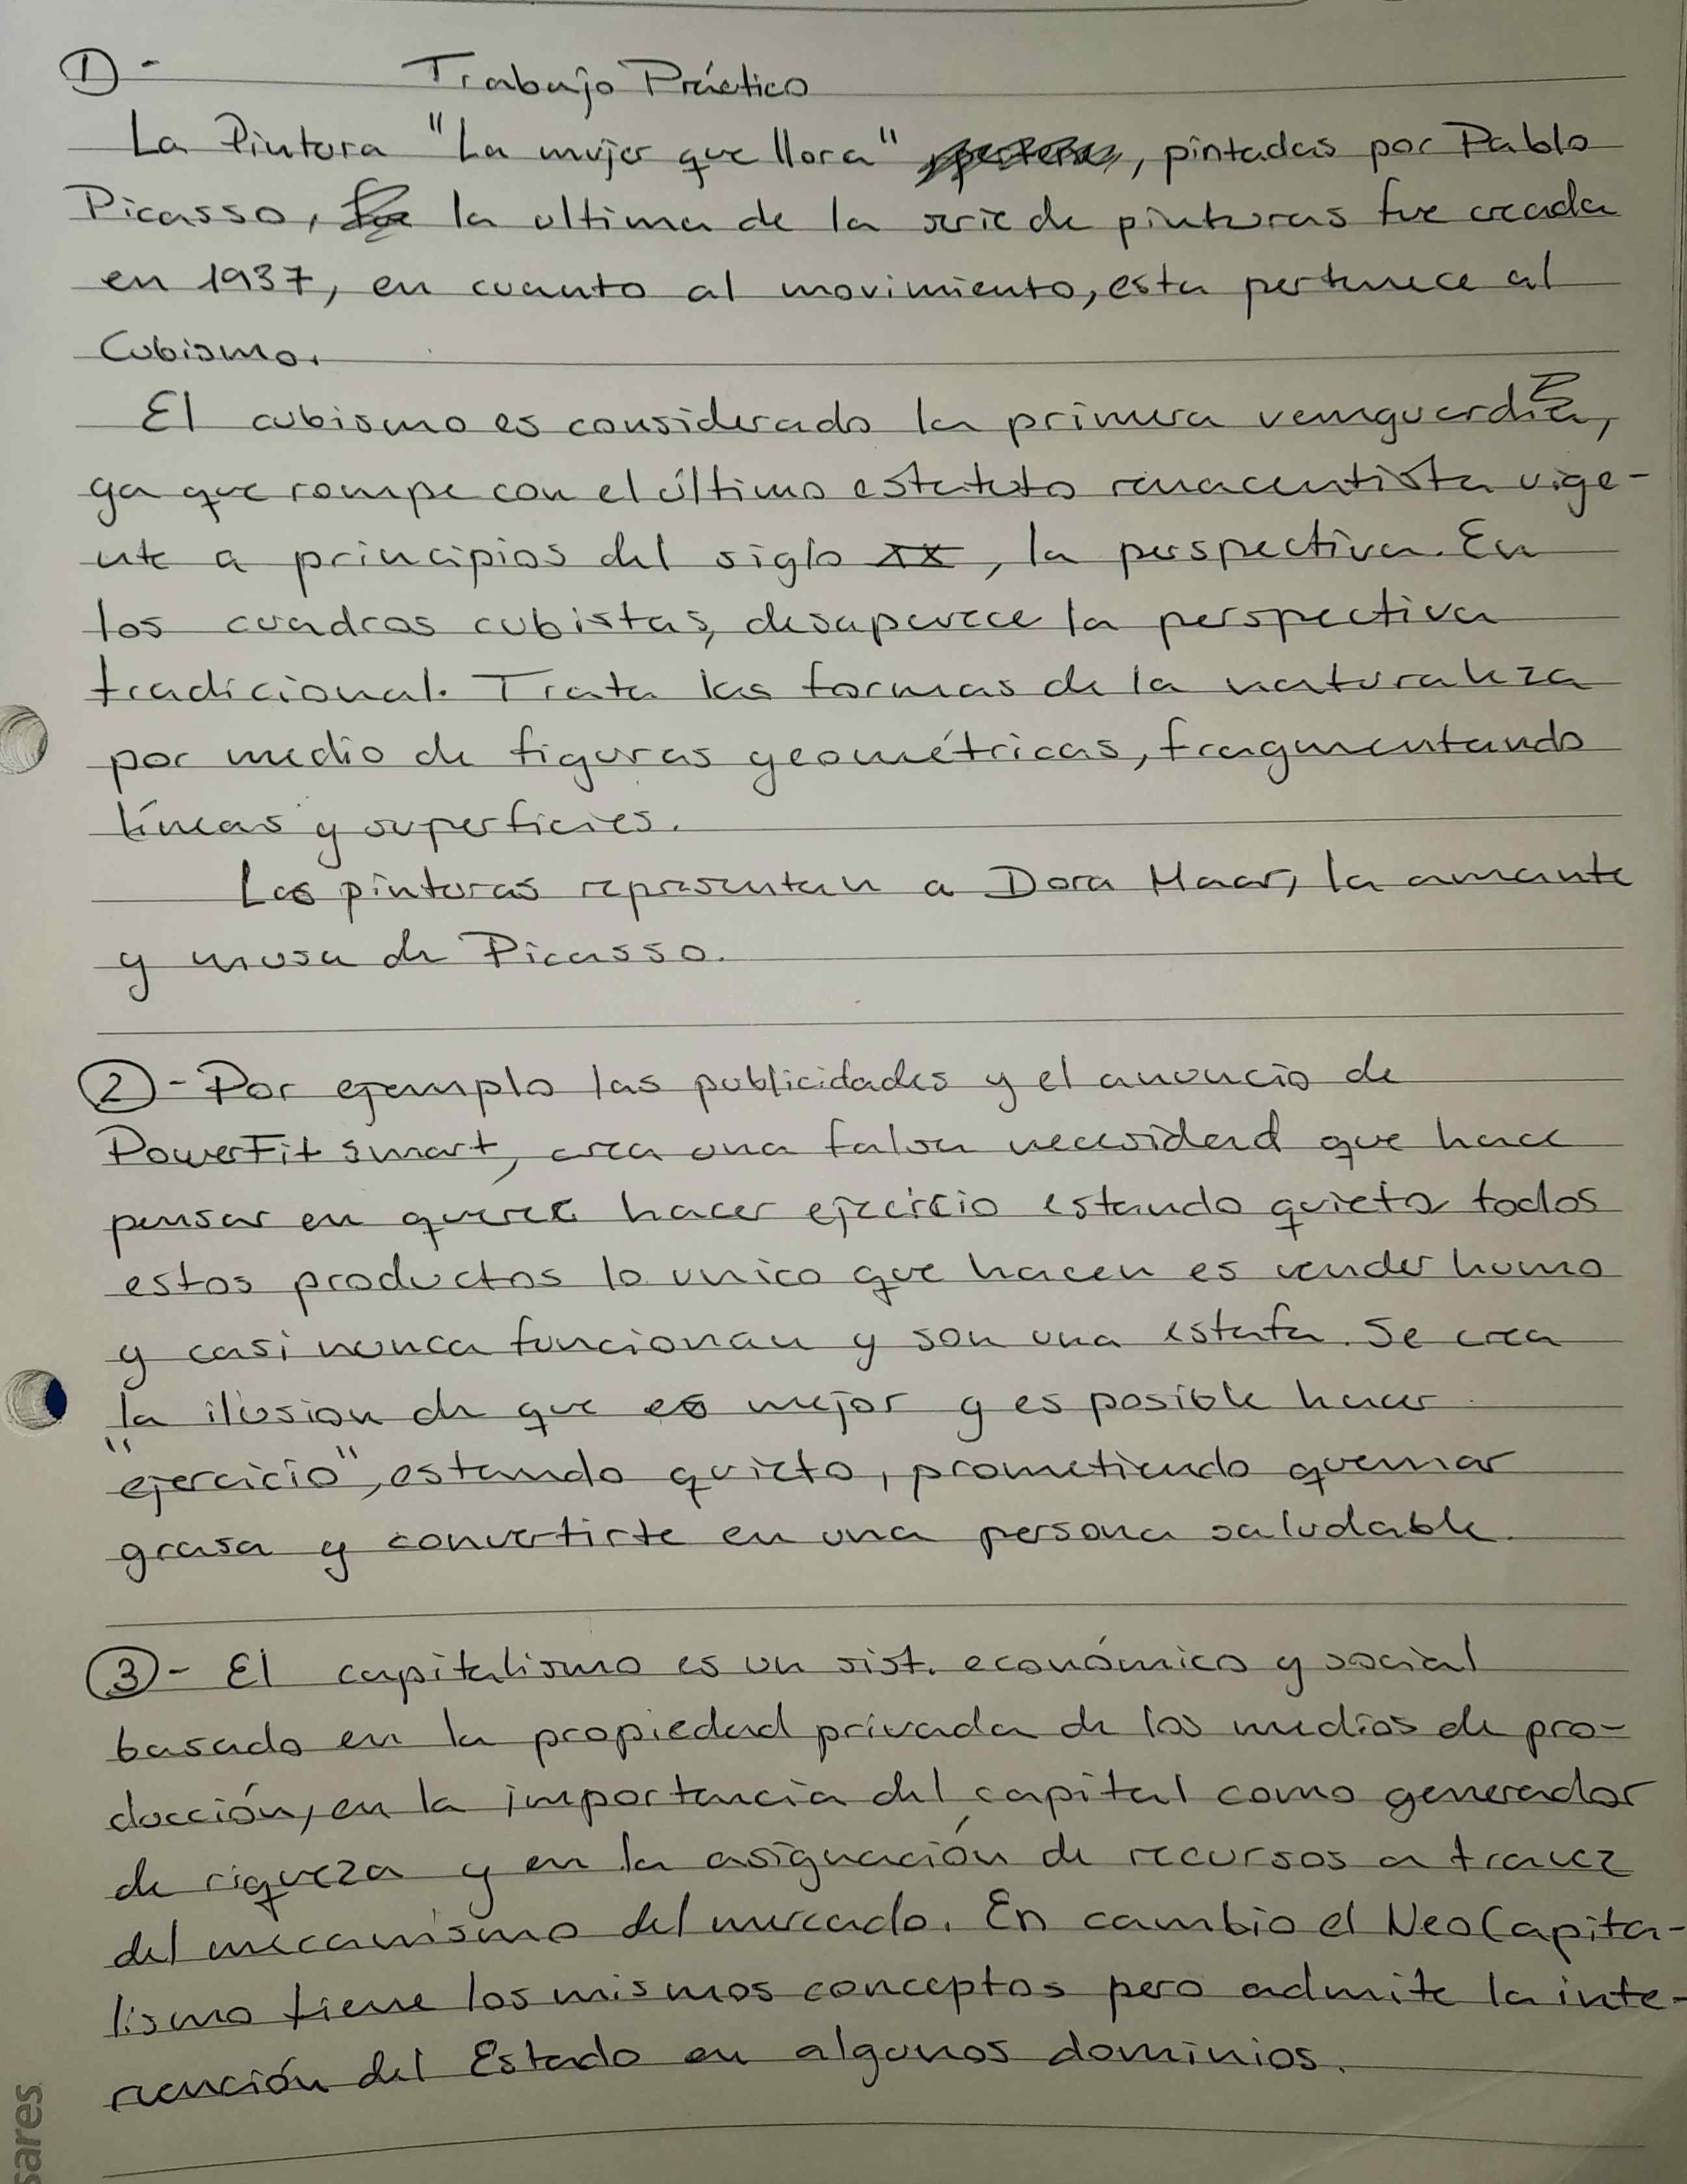 ① - Trabajo Práctico
La Pintura "La mujer que llora" , pintadas por Pablo
Picasso, la ultima de la serie de pinturas fue creada
en 1937, en cuanto al movimiento, esta pertenece al
Cubismo.
El cubismo es considerado la primera venguardia,
ya que rompe con el último estatuto renacentista vige-
nte a principios del siglo XX, la perspectiva. En
los cuadros cubistas, desaparece la perspectiva
tradicional. Trata las formas de la naturaleza
por medio de figuras geométricas, fragmentando
líneas y superficies.
Las pinturas representan a Dora Maar, la amante
y musa de Picasso.
② - Por ejemplo las publicidades y el anuncio de
PowerFit smart, crea una falsa necesidad que hace
pensar en querer hacer ejercicio estando quieto todos
estos productos lo unico que hacen es vender humo
y casi nunca funcionan y son una estafa. Se crea
la ilusion de que es mejor y es posible hacer
"ejercicio", estando quieto, prometiendo quemar
grasa y convertirte en una persona saludable.
③ - El capitalismo es un sist. económico y social
basado en la propiedad privada de los medios de pro-
ducción, en la importancia del capital como generador
de riqueza y en la asignación de recursos a travez
del mecanismo del mercado. En cambio el NeoCapita-
lismo tiene los mismos conceptos pero admite la inte-
rvención del Estado en algunos dominios.
sares